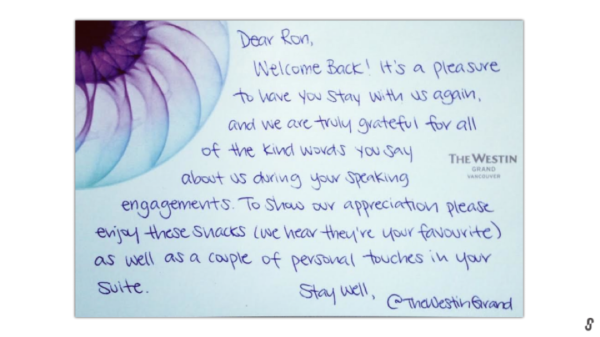 Dear Ron,
Welcome Back! It's a pleasure
to have you stay with us again,
and we are truly grateful for all
of the kind words you say
about us during your speaking
engagements. To show our appreciation please
enjoy these snacks (we hear they're your favourite)
as well as a couple of personal touches in your
suite.
Stay Well,
@TheWestinGrand
THE WESTIN
GRAND
VANCOUVER
S